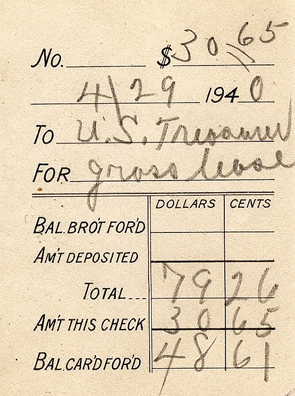 No. $30 65
4/29 1940
To U.S. Treasurer
For gross lease
DOLLARS CENTS
BAL. BRO'T FOR'D
AM'T DEPOSITED
TOTAL... 79 26
AM'T THIS CHECK 30 65
BAL. CAR'D FOR'D 48 61